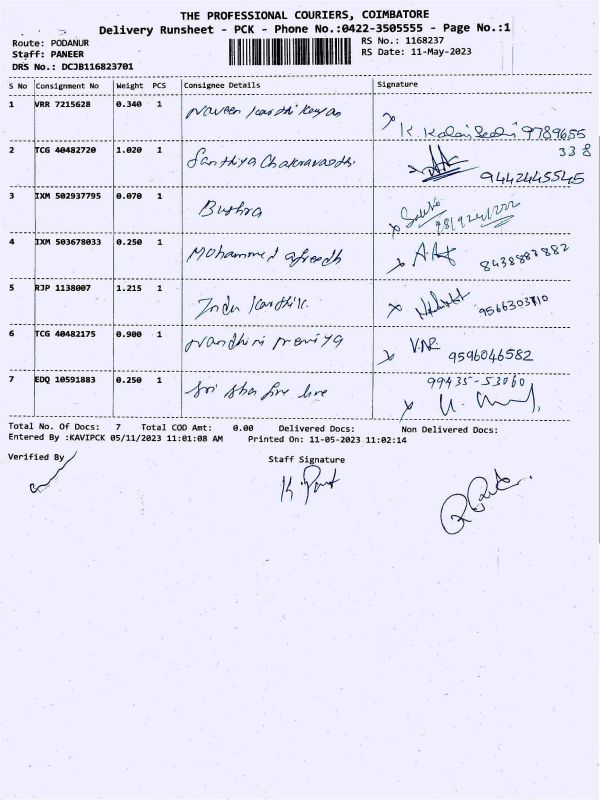 THE PROFESSIONAL COURIERS, COIMBATORE
Delivery Runsheet - PCK - Phone No.:0422-3505555 - Page No.:1
Route: PODANUR RS No.: 1168237
Staff: PANEER RS Date: 11-May-2023
DRS No.: DCJB116823701
S No Consignment No Weight PCS Consignee Details Signature
1 VRR 7215628 0.340 1 Naveen Karthikeyan
9789655
338
2 TCG 40482720 1.020 1 Santhiya Chakravarthi 9442445545
3 IXM 502937795 0.070 1 Bushra
4 IXM 503678033 0.250 1 Mohammed afreedh 8438887882
5 RJP 1138007 1.215 1 Indu Karthik.
6 TCG 40482175 0.900 1 Nandhini V.NR.
9596046582
7 EDQ 10591883 0.250 1 Sri 99435-53060
Total No. Of Docs: 7 Total COD Amt: 0.00 Delivered Docs: Non Delivered Docs:
Entered By :KAVIPCK 05/11/2023 11:01:08 AM Printed On: 11-05-2023 11:02:14
Verified By Staff Signature